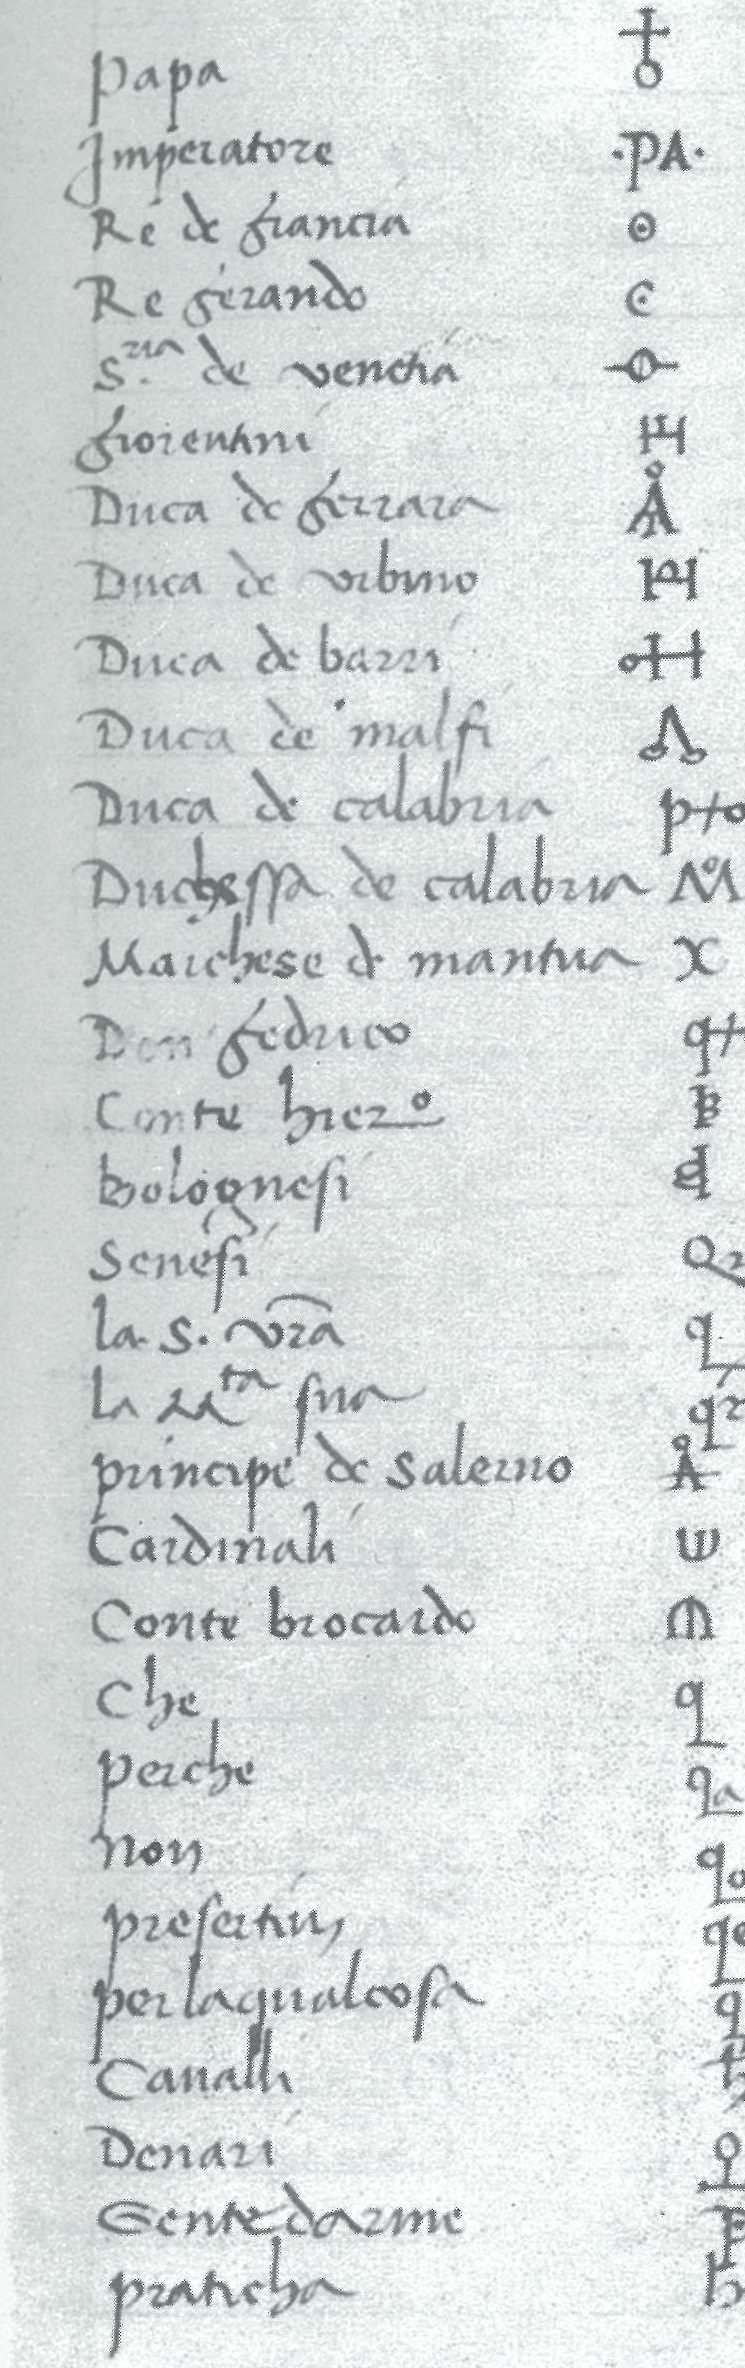 papa
Imperatore ·PA·
Re de francia
Re ferando
S.ria de venetia
fiorentini
Duca de ferrara
Duca de urbino
Duca de barri
Duca de malfi
Duca de calabria
Duchessa de calabria
Marchese de mantua
Don fedrico
Conte hier.o
bolognesi
Senesi
la S. vra
la M.ta sua
principe de Salerno
Cardinali
Conte brocardo
Che
perche
non
presertim
perlaqualcosa
Caualli
Denari
Gente darme
praticha